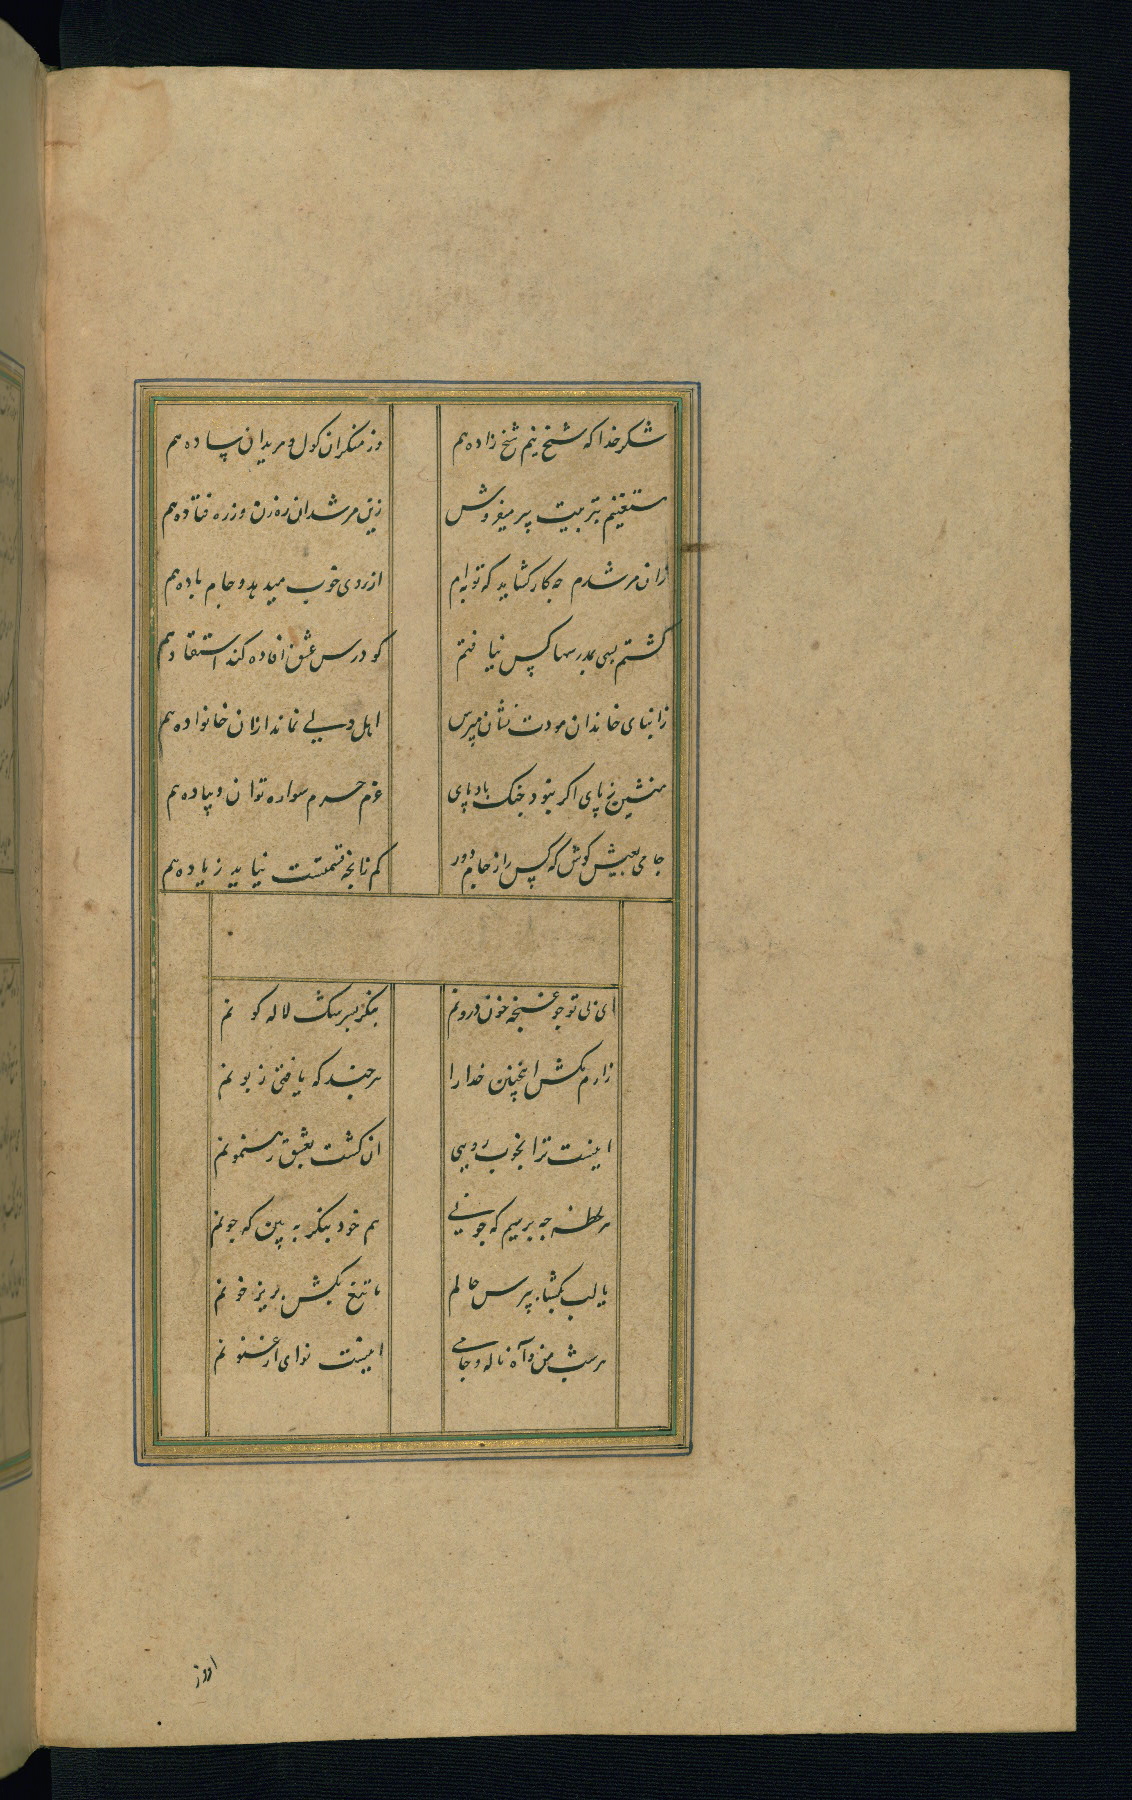 شکر خدا که شیخ نیم شیخ زاده هم وز منکران کول و مریدان ساده هم
مستغنیم بتربیت پیر میفروش زین مرشدان ره زن و زره فتاده هم
زان مرشدم چه کار کشاید که توبه ام از روی خوب میدهد و جام باده هم
کشتم بسی بمدرسها کس نیافتم کو درس عشق افاده کند استفاده هم
زابنای خاندان مودت نشان مپرس اهل دلی نماند ازان خانواده هم
منشین ز پای اگر نبود خنک بادپای عزم حرم سواره توان و پیاده هم
جامی بعیش کوش که کس را ز جام دور کم زانچه قسمتست نیاید زیاده هم
ای بی تو چو غنچه خون درونم بنکر بسرشک لاله کونم
زارم مکش اینچنین خدا را هر چند که یافتی زبونم
اینست ترا بخوب رویی ان کشت بعشق رهنمونم
هر لحظه چه پرسیم که چونی هم خود بنکر ببین که چونم
یا لب بکشا بپرس حالم یا تیغ بکش بریز خونم
هر شب من و آه و ناله جامی اینست نوای ارغنونم